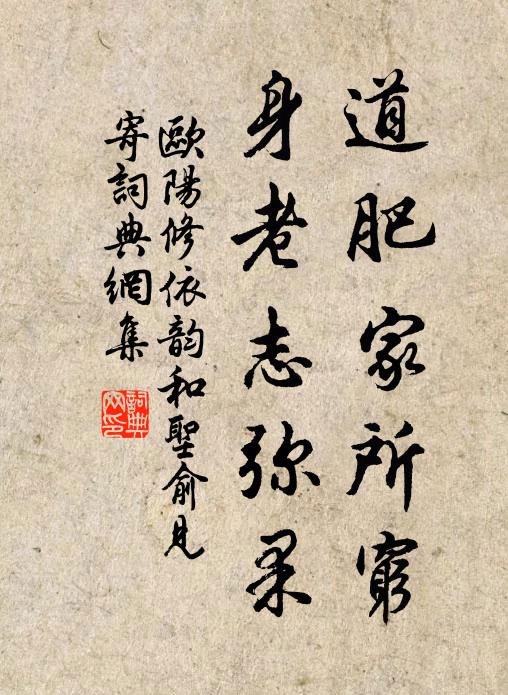 道肥家所窮
身老志弥果
歐陽修依韵和聖俞見
寄詞典網集
詞典
网印